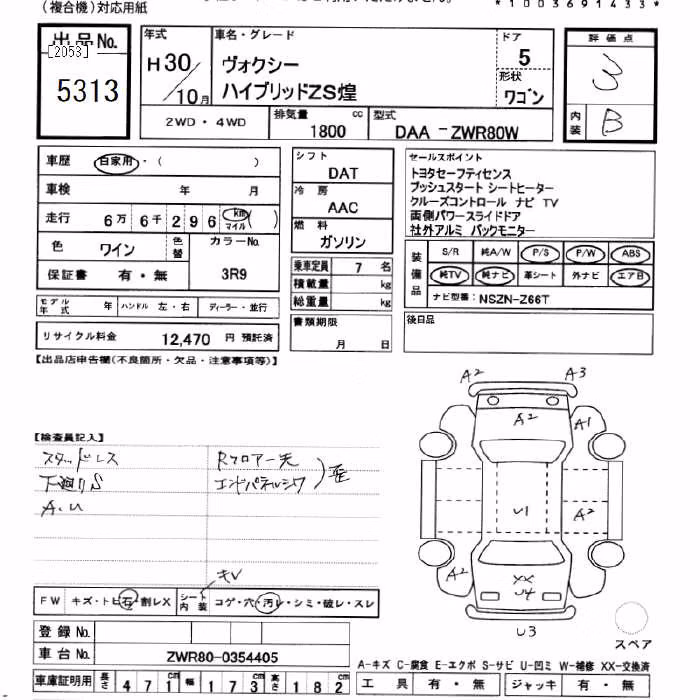 (複合機)対応用紙
*1003691433*
出品No.
[2053]
5313
年式
H30/10月
車名・グレード
ヴォクシー
ハイブリッドZS煌
ドア
5
形状
ワゴン
評価点
3
内装
B
2WD・4WD
排気量
1800 cc
型式
DAA-ZWR80W
車歴 自家用・( )
車検 年 月
走行 6万 6千 2 9 6 km マイル ( )
色 ワイン 色替 カラーNo. 3R9
保証書 有・無
モデル年式 年 ハンドル 左・右 ディーラー・並行
リサイクル料金 12,470 円 預託済
シフト
DAT
冷房
AAC
燃料
ガソリン
乗車定員 7 名
積載量 kg
総重量 kg
書類期限
月 日
セールスポイント
トヨタセーフティセンス
プッシュスタート シートヒーター
クルーズコントロール ナビ TV
両側パワースライドドア
社外アルミ バックモニター
装備品
S/R 純A/W P/S P/W ABS
純TV 純ナビ 革シート 外ナビ エアB
ナビ型番: NSZN-Z66T
後日品
【出品店申告欄(不良箇所・欠品・注意事項等)】
【検査員記入】
スタッドレス
下廻りS
A.U
Rフロアー先
エンドパネルシワ
) 歪
キレ
FW キズ・トビ石・割レX
シート内装 コゲ・穴・汚レ・シミ・破レ・スレ
登録No.
車台No. ZWR80-0354405
車庫証明用 長さ 4 7 1 幅 1 7 3 高さ 1 8 2
A2
A3
A2
A1
U1
A2
A2
XX
U4
U3
スペア
A-キズ C-腐食 E-エクボ S-サビ U-凹ミ W-補修 XX-交換済
工具 有・無 ジャッキ 有・無